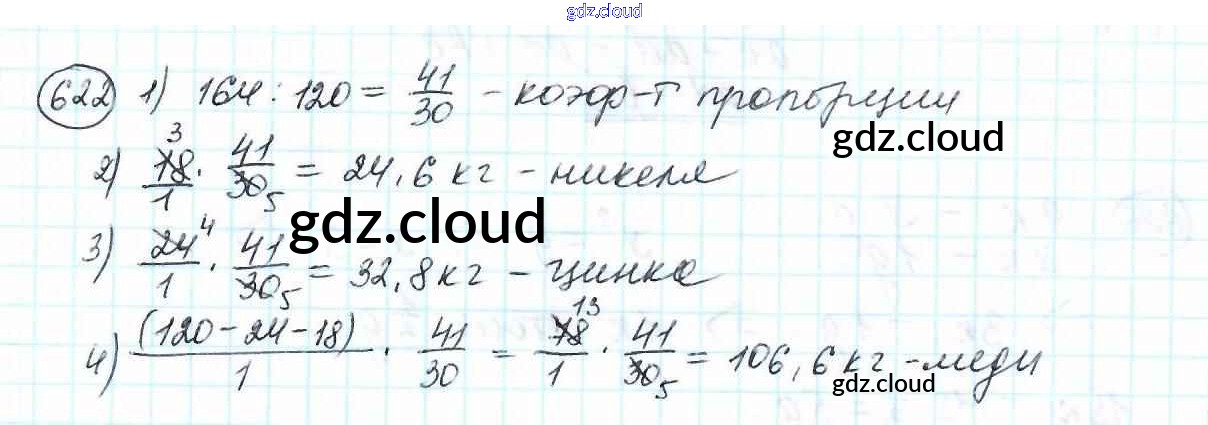 gdz.cloud
622 1) 164 : 120 = 41/30 - коэф-т пропорции
gdz.cloud
2) 18/1 · 41/30 = 24,6 кг - никеля
3 5
gdz.cloud
3) 24/1 · 41/30 = 32,8 кг - цинка
4 5
4) (120 - 24 - 18)/1 · 41/30 = 78/1 · 41/30 = 106,6 кг - меди
13 5
gdz.cloud